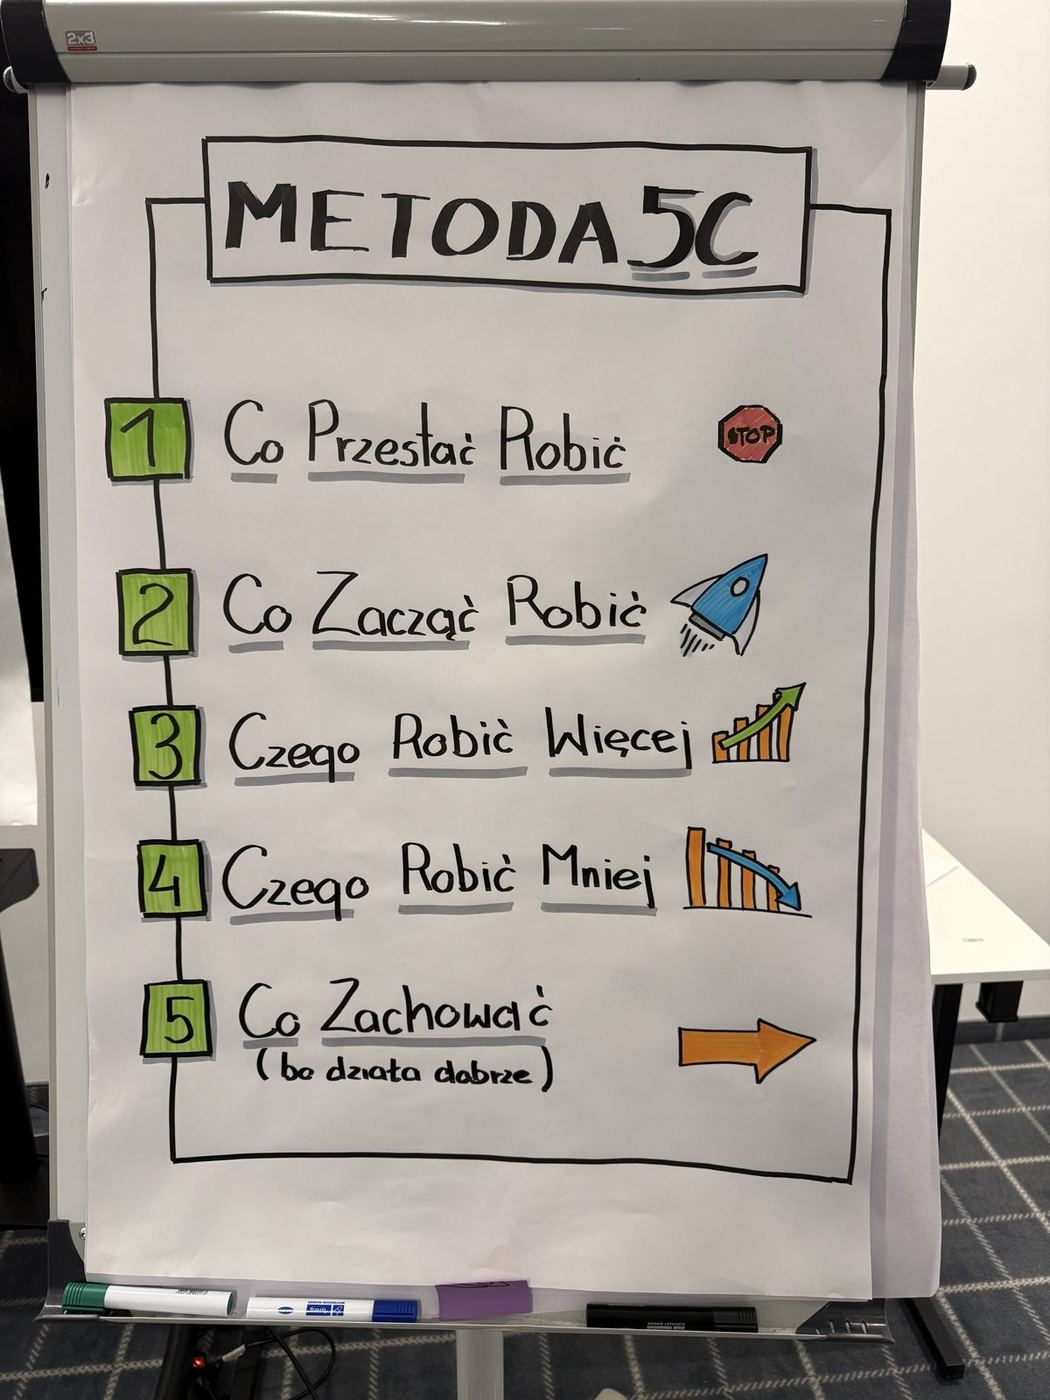 2x3
METODA 5C
1 Co Przestać Robić STOP
2 Co Zacząć Robić
3 Czego Robić Więcej
4 Czego Robić Mniej
5 Co Zachować
(bo działa dobrze)